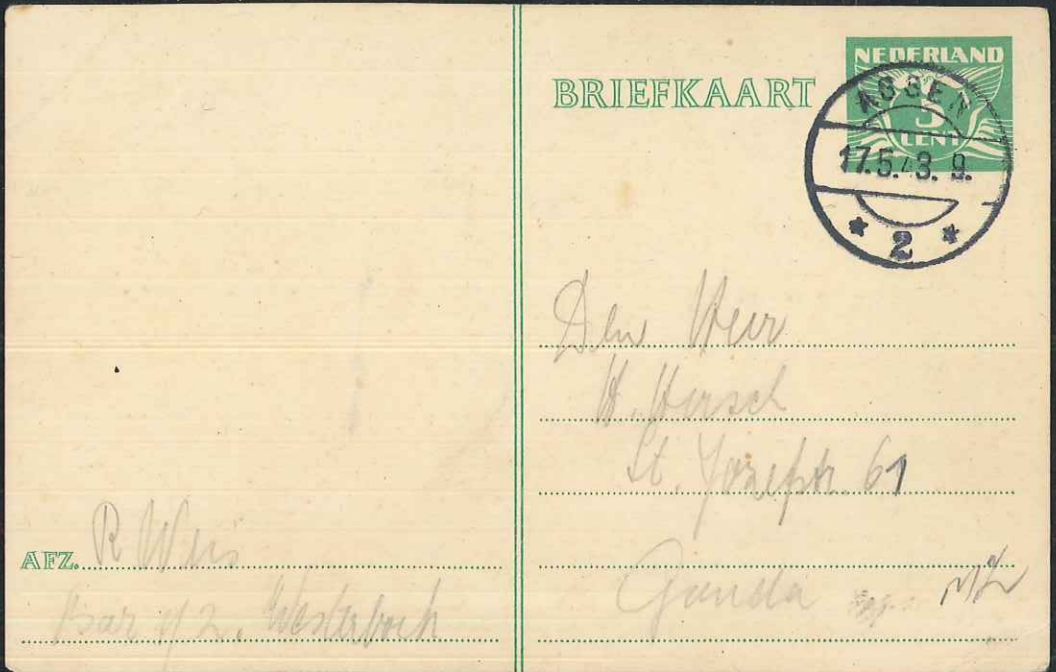 BRIEFKAART
NEDERLAND
5
CENT
ASSEN
17.5.43. 9.
* 2 *
Den Heer
H. Hirsch
St. Jozefstr. 61
Gouda
AFZ. R Weis
Bar 2. Westerbork